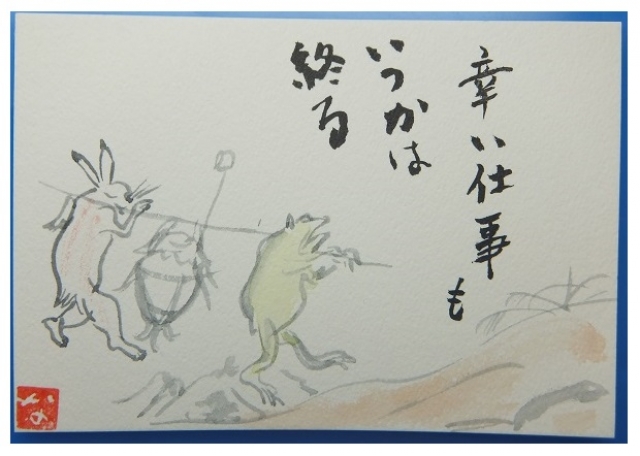 辛い仕事も
いつかは
終る